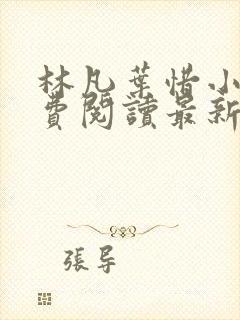 林凡葉惜小
費閱讀最新
張导